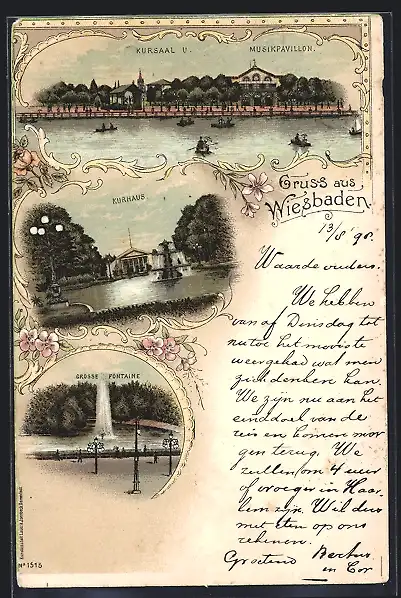 KURSAAL U. MUSIKPAVILLON.
KURHAUS
GROSSE FONTAINE
Gruss aus
Wiesbaden.
13/8 '98.
Waarde ouders.
We hebben
van af Dinsdag tot
nu toe het mooiste
weer gehad wat men
zich denken kan.
We zijn nu aan het
einddoel van de
reis en komen mor
gen terug. We
zullen om 4 uur
of vroeger in Haar
lem zijn. Wil dus
met eten op ons
rekenen.
Groetend
en Cor
No 1515